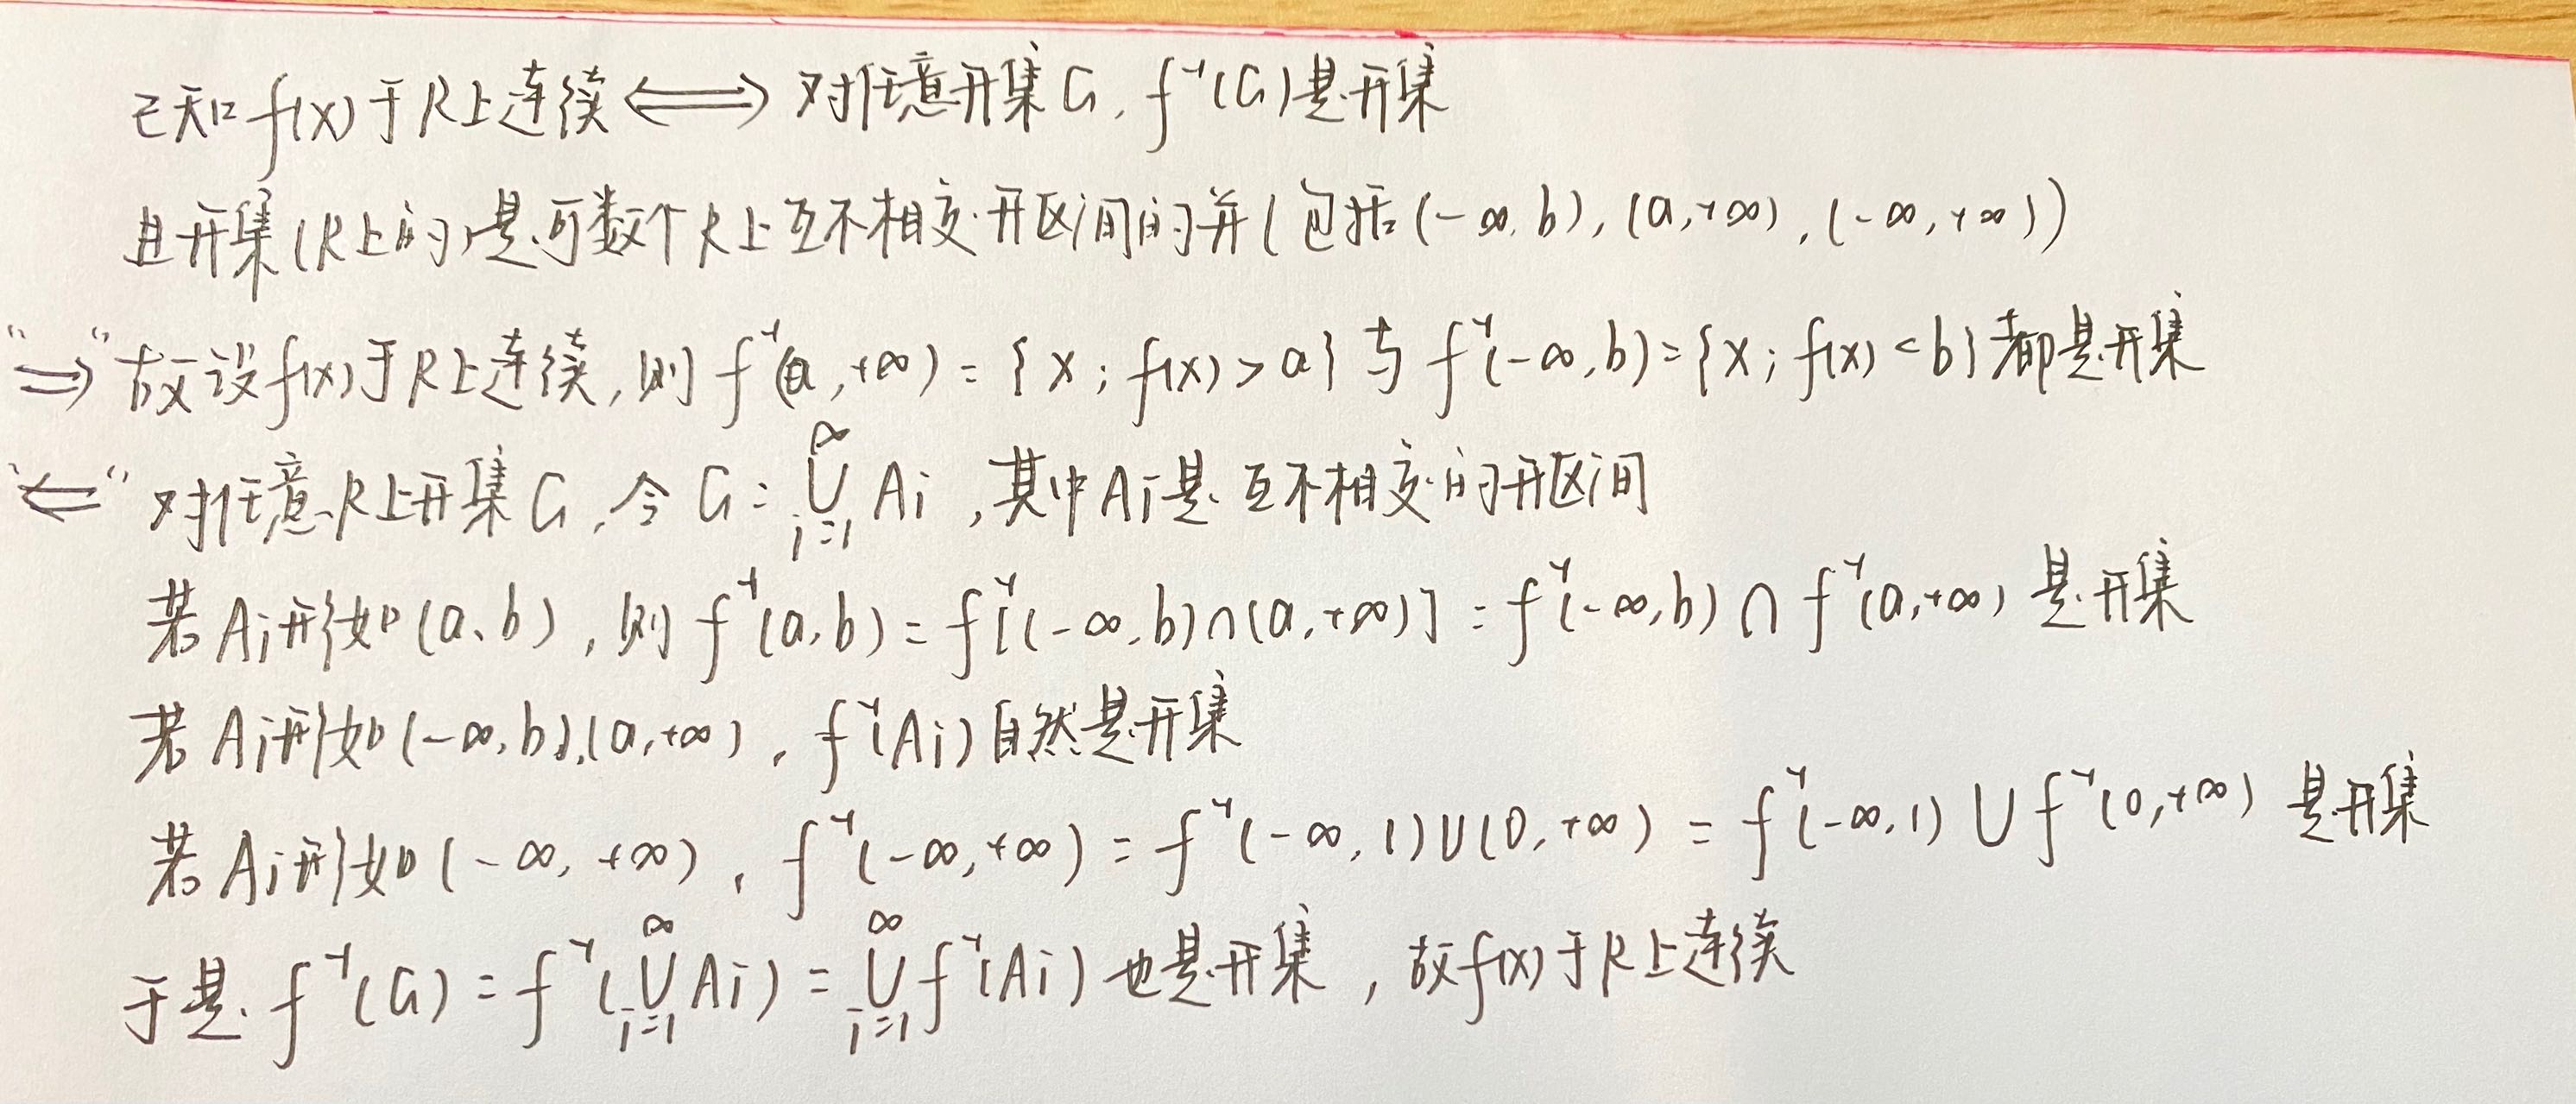 已知f(x)于R上连续⟺对任意开集G,f⁻¹(G)是开集
且开集(R上的)是可数个R上互不相交开区间的并(包括(-∞,b),(a,+∞),(-∞,+∞))
"⇒"故设f(x)于R上连续,则f⁻¹(a,+∞)={x;f(x)>a}与f⁻¹(-∞,b)={x;f(x)<b}都是开集
"⇐"对任意R上开集G,令G=⋃_{i=1}^{∞}Ai,其中Ai是互不相交的开区间
若Ai形如(a,b),则f⁻¹(a,b)=f⁻¹[(-∞,b)∩(a,+∞)]=f⁻¹(-∞,b)∩f⁻¹(a,+∞)是开集
若Ai形如(-∞,b),(a,+∞),f⁻¹(Ai)自然是开集
若Ai形如(-∞,+∞),f⁻¹(-∞,+∞)=f⁻¹(-∞,1)∪(0,+∞)=f⁻¹(-∞,1)∪f⁻¹(0,+∞)是开集
于是f⁻¹(G)=f⁻¹(⋃_{i=1}^{∞}Ai)=⋃_{i=1}^{∞}f⁻¹(Ai)也是开集,故f(x)于R上连续